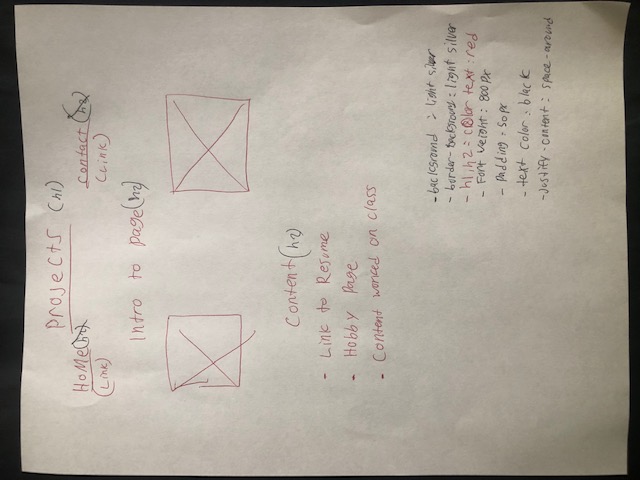 Projects (h1)
Home (h2) Contact (h2)
(Link) (Link)
Intro to page (h2)
Content (h2)
- Link to Resume
- Hobby Page
- Content worked on class
- background : light silver
- border-background : light silver
- h1, h2 = color text : red
- Font weight : 800px
- Padding : 50px
- text color : black
- Justify-content : space-around